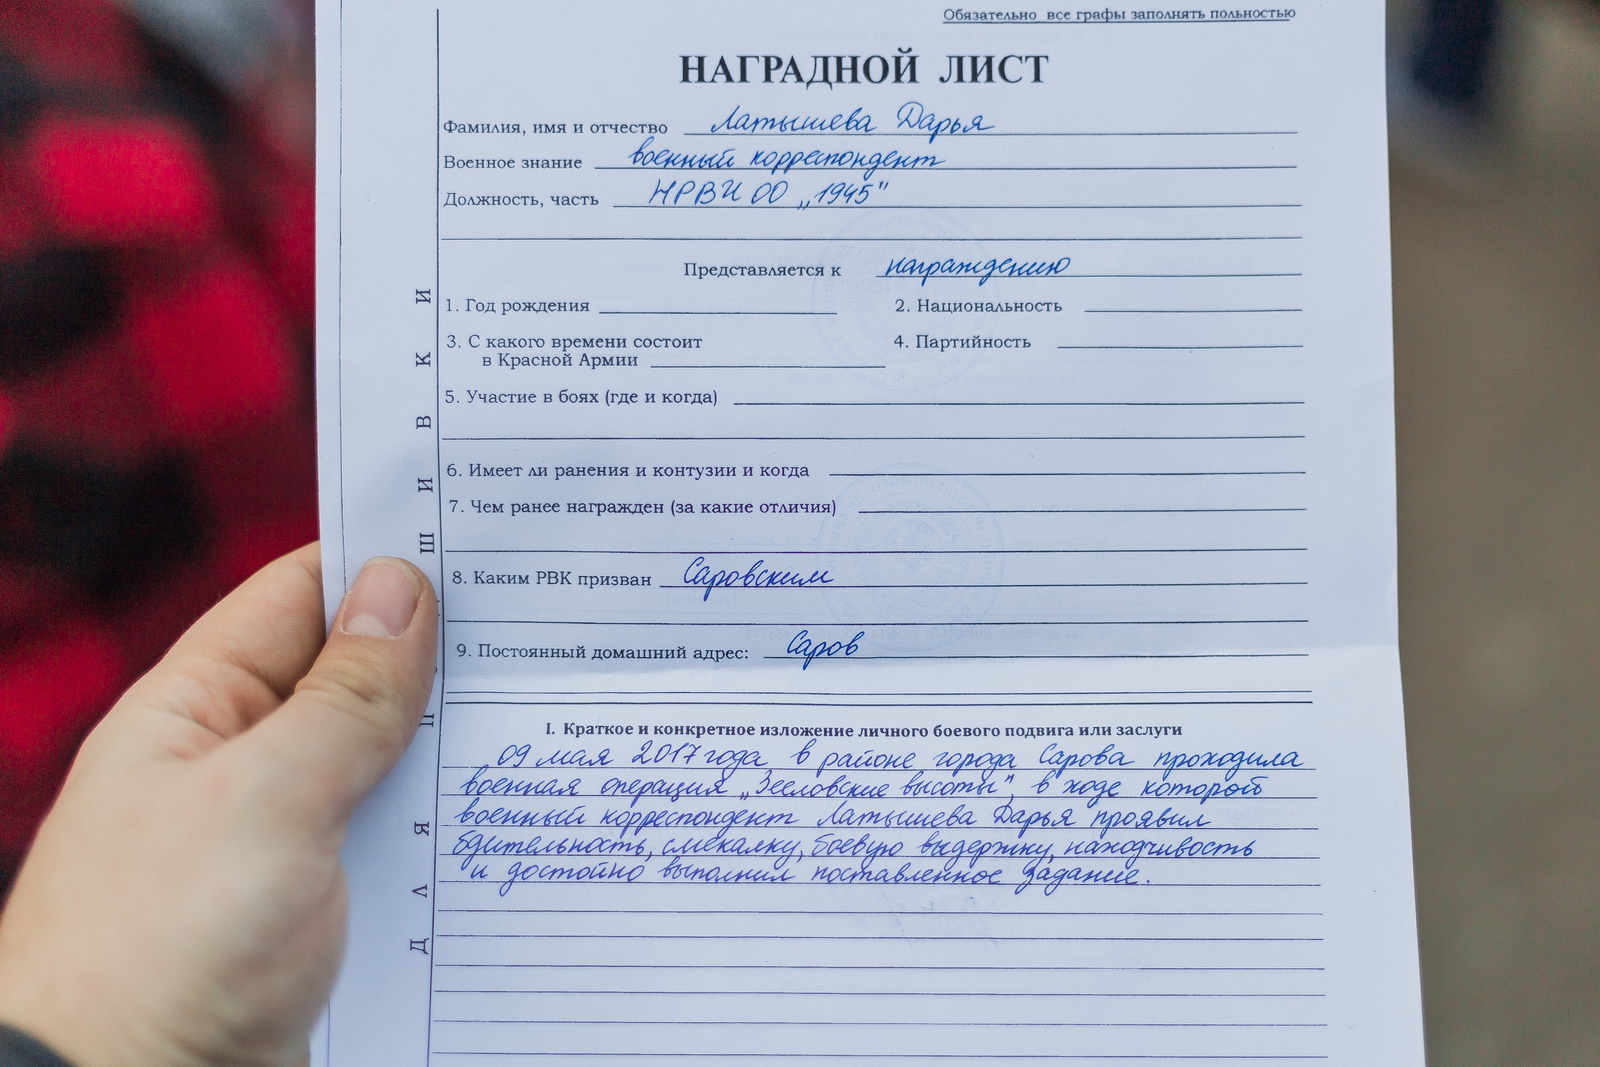 Обязательно все графы заполнять польностью
НАГРАДНОЙ ЛИСТ
Фамилия, имя и отчество Латышева Дарья
Военное знание военный корреспондент
Должность, часть НРВИ ОО „1945"
Представляется к награждению
1. Год рождения
2. Национальность
3. С какого времени состоит
в Красной Армии
4. Партийность
5. Участие в боях (где и когда)
6. Имеет ли ранения и контузии и когда
7. Чем ранее награжден (за какие отличия)
8. Каким РВК призван Саровским
9. Постоянный домашний адрес: Саров
I. Краткое и конкретное изложение личного боевого подвига или заслуги
09 мая 2017 года в районе города Сарова проходила
военная операция „Зееловские высоты", в ходе которой
военный корреспондент Латышева Дарья проявил
бдительность, смекалку, боевую выдержку, находчивость
и достойно выполнил поставленное задание.
ДЛЯ ПОДШИВКИ